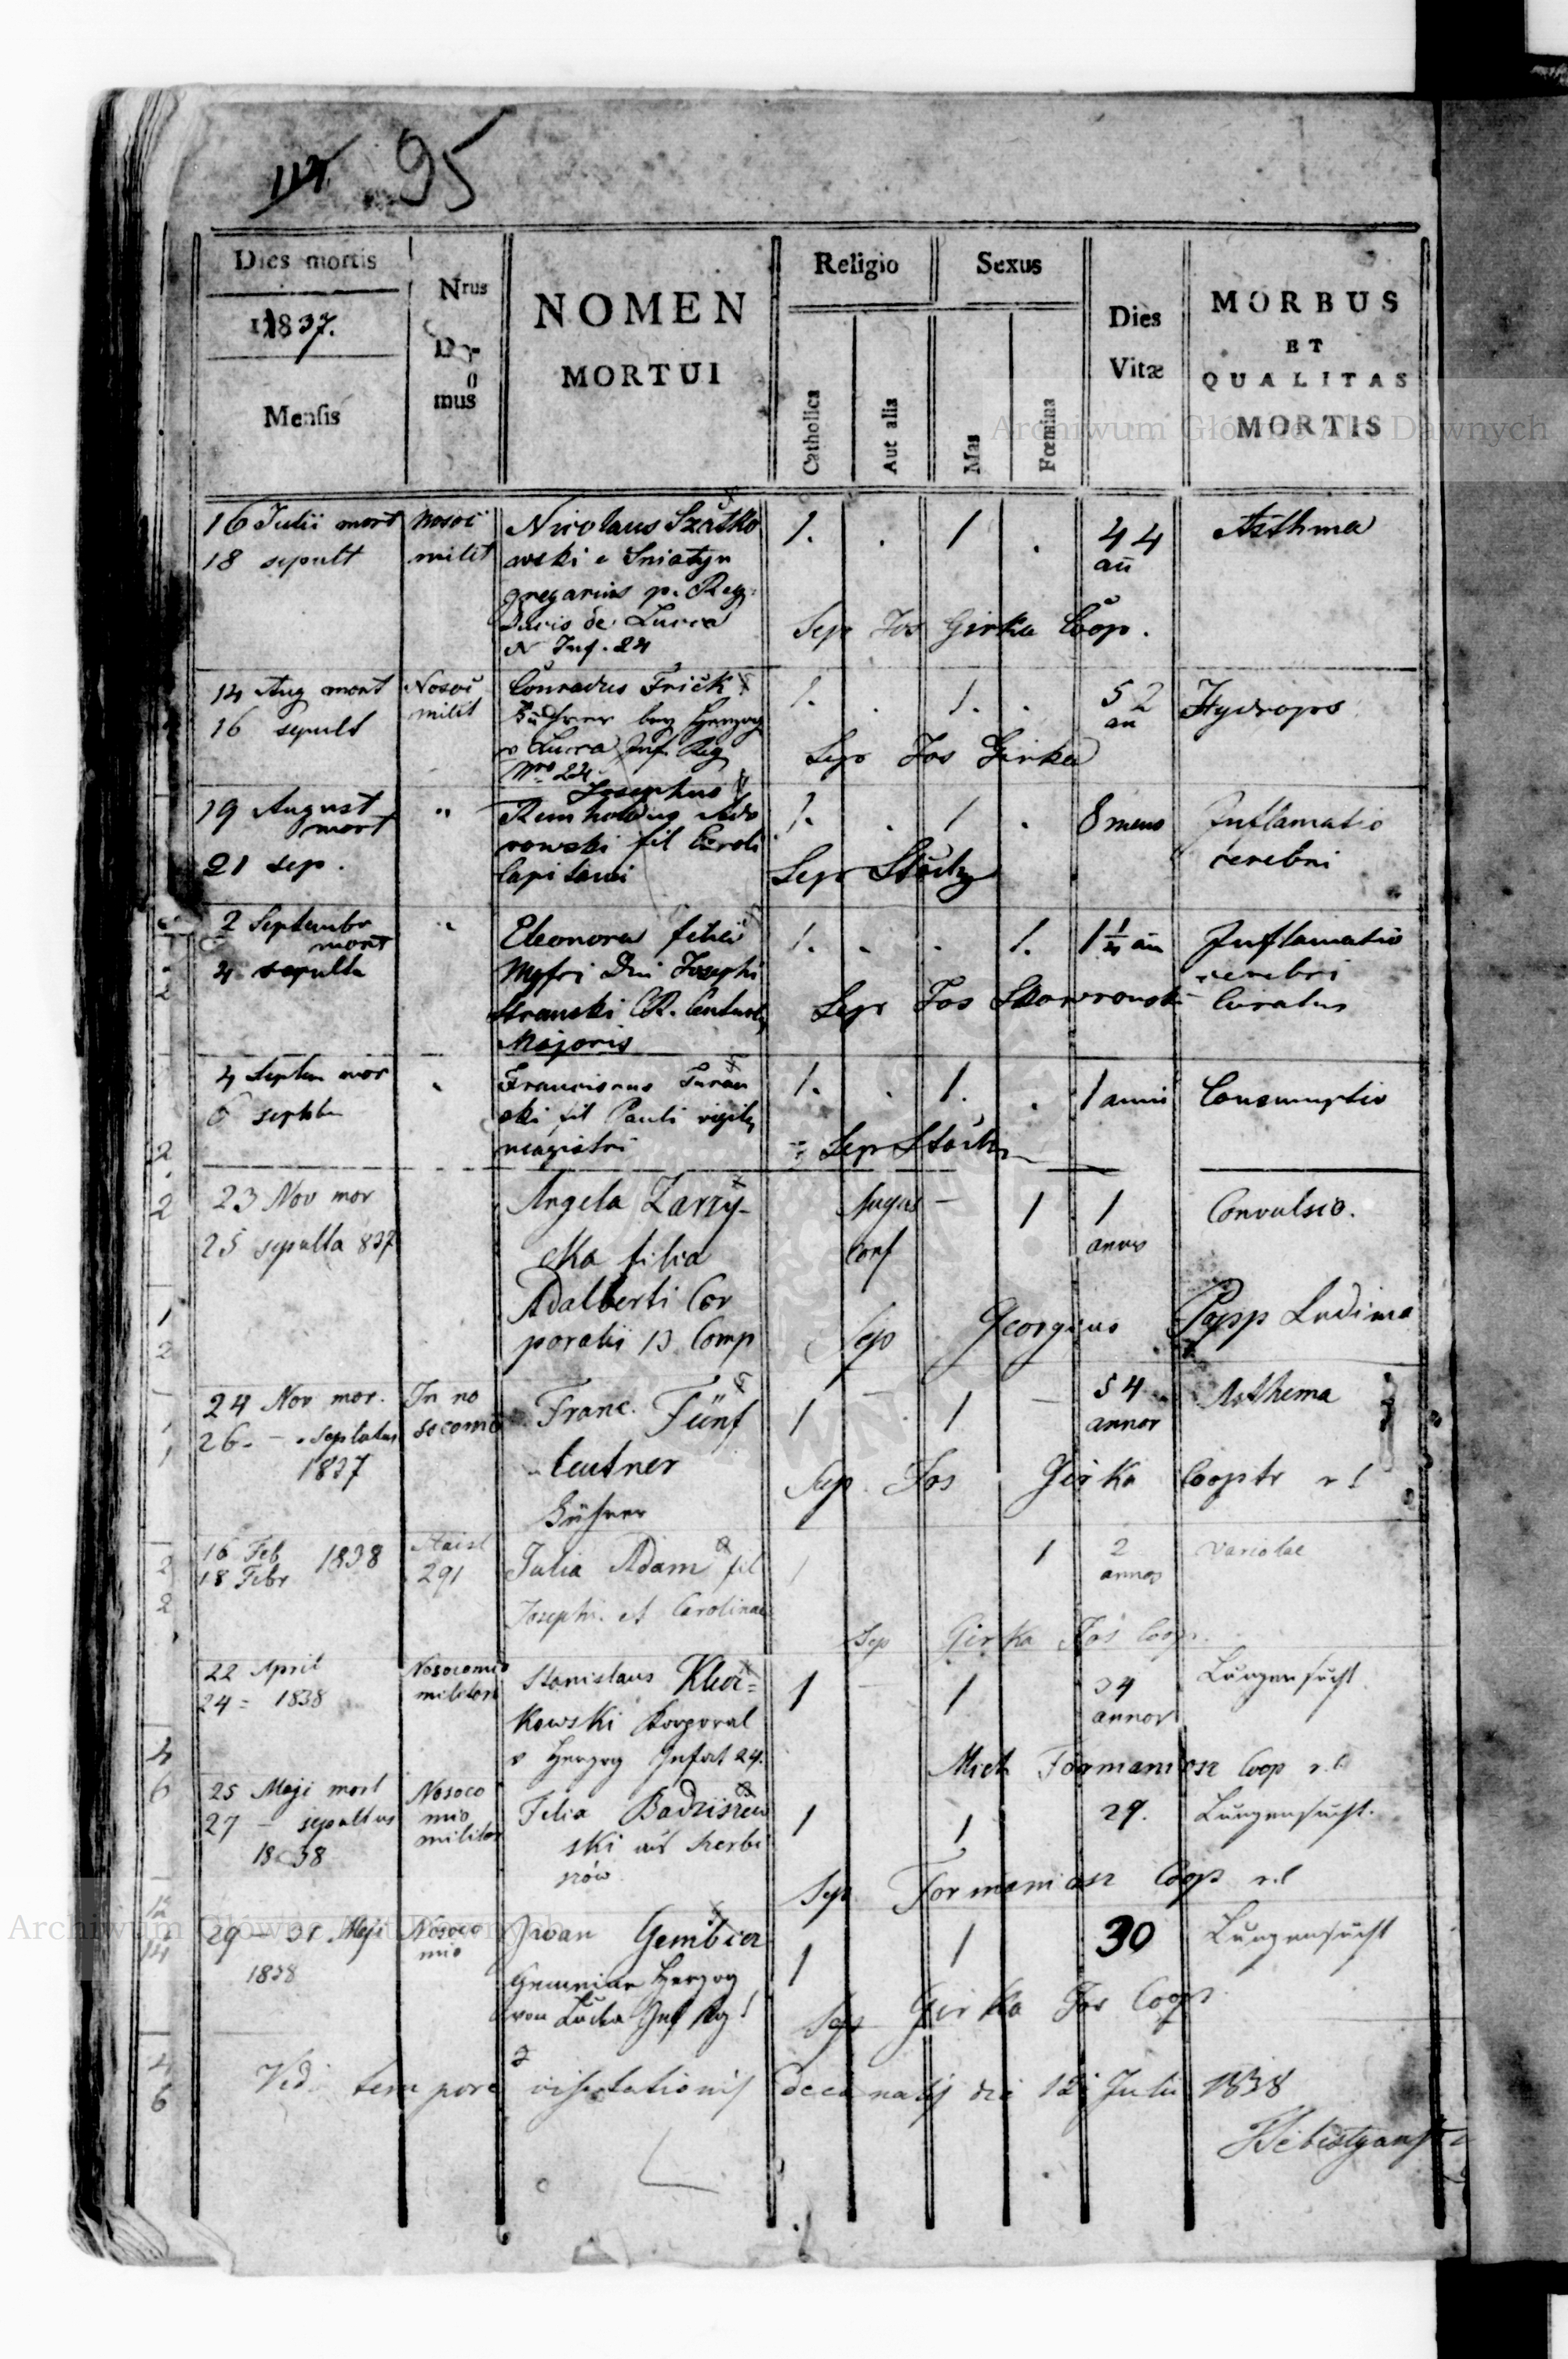 95
Dies mortis
1837.
Mensis
Nrus
Do-
mus
NOMEN
MORTUI
Religio
Catholica
Aut alia
Sexus
Mas
Fœmina
Dies
Vitæ
MORBUS
ET
QUALITAS
MORTIS
Archiwum Główne Akt Dawnych
16 Julii mort
18 sepult
Nosoc
milit
Nicolaus Szatko
wski e Sniatyn
gregarius p. Reg.
Ducis de Lucca
N Inf. 24
1. . 1 .
44
an
Asthma
Sep Jos Girka Coop.
14 Aug mort
16 sepult
Nosoc
milit
Conradus Frick
Führer bey Herzog
v Lucca Inf. Reg
Nro 24
1. . 1. .
52
an
Hydrops
Sep Jos Girka
19 August
mort
21 sep.
"
Josephus
fil Caroli
Capitanei
1. . 1 .
8 mens
Inflamatio
cerebri
Sep
2 Septembr
mort
4 sepulta
"
Eleonora filia
Dni Josephi
Stranski CR.
Majoris
1. . . 1.
1 1/4 an
Inflamatio
cerebri
Sep Jos Skowronski Curatus
4 Septem mor
6 septbr
"
Franciscus Turan
ski fil Pauli vigil
magistri
1. . 1. .
1 anni
Consumptio
Sep
23 Nov mor
25 sepulta 837
Angela Zarzy-
cka filia
Adalberti Cor
poralis 13 Comp
Augus
Conf
— 1
1
annus
Convulsio.
Sep Georgius Papp Ludima
24 Nov mor.
26 - - sepultus
1837
In no
socomio
Franc. Fünf
leutner
Führer
1 — 1 —
54
annor
Asthema
Sep Jos Girka Cooptr r l
16 Feb 1838
18 Febr
291
Julia Adam fil
Josephi et Carolinae
1 1
2
annos
Variolae
Sep Girka Jos Coop.
22 April
24 = 1838
Nosocomio
militari
Stanislaus
kowski Korporal
v Herzog Infat 24.
1 — 1
34
annor
Lungensucht
Mich Formaniosz Coop r.l
25 Maji mort
27 — sepultus
1838
Nosoco
mio
militar
Felix Badziszew
ski aus
1 1
29.
Lungensucht.
Sep Formaniosz Coop r.l
29 — 31 Maji
1838
Nosoco
mio
Iwan
Gemeiner Herzog
von Lucka Inf Reg
1 1
30
Lungensucht
Sep Girka Jos Coop
Archiwum Główne Akt Dawnych
Vidi tempore visitationis decanalis die 12 Julii 1838